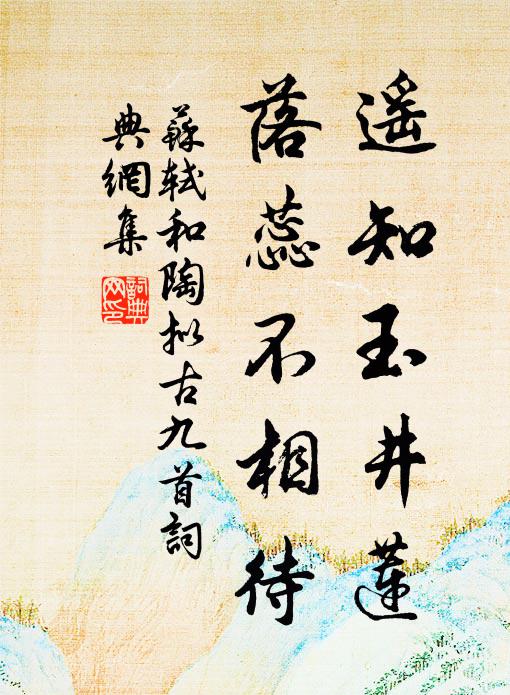 遥知玉井蓮
落蕊不相待
蘇軾和陶拟古九首詞
典網集
詞典
网印